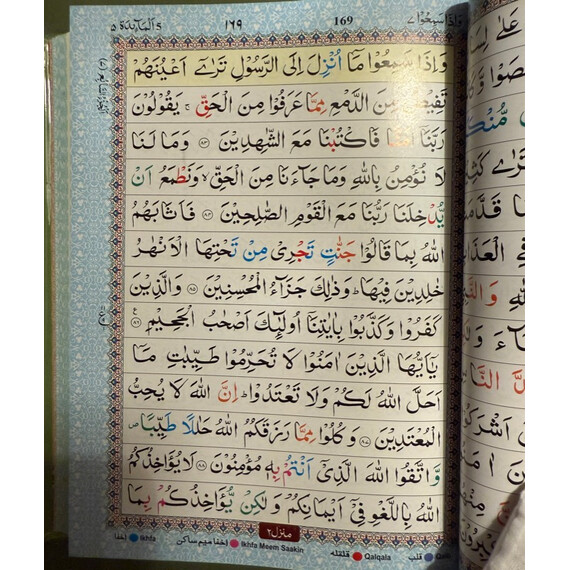 وَاِذَا سَمِعُوۡا ٧ 169 ١٦٩ اَلۡمَآئِدَة ٥
وَاِذَا سَمِعُوۡا مَاۤ اُنۡزِلَ اِلَى الرَّسُوۡلِ تَرٰٓى اَعۡيُنَهُمۡ
تَفِيۡضُ مِنَ الدَّمۡعِ مِمَّا عَرَفُوۡا مِنَ الۡحَـقِّ‌ۚ يَقُوۡلُوۡنَ
رَبَّنَاۤ اٰمَنَّا فَاكۡتُبۡنَا مَعَ الشّٰهِدِيۡنَ ٨٣ وَمَا لَـنَا
لَا نُؤۡمِنُ بِاللّٰهِ وَمَا جَآءَنَا مِنَ الۡحَـقِّۙ وَنَطۡمَعُ اَنۡ
يُّدۡخِلَـنَا رَبُّنَا مَعَ الۡقَوۡمِ الصّٰلِحِيۡنَ ٨٤ فَاَثَابَهُمُ
اللّٰهُ بِمَا قَالُوۡا جَنّٰتٍ تَجۡرِىۡ مِنۡ تَحۡتِهَا الۡاَنۡهٰرُ
خٰلِدِيۡنَ فِيۡهَا‌ ؕ وَذٰ لِكَ جَزَآءُ الۡمُحۡسِنِيۡنَ ٨٥ وَالَّذِيۡنَ
كَفَرُوۡا وَكَذَّبُوۡا بِاٰيٰتِنَاۤ اُولٰٓئِكَ اَصۡحٰبُ الۡجَحِيۡمِ ٨٦ ع
يٰۤـاَيُّهَا الَّذِيۡنَ اٰمَنُوۡا لَا تُحَرِّمُوۡا طَيِّبٰتِ مَاۤ
اَحَلَّ اللّٰهُ لَـكُمۡ وَلَا تَعۡتَدُوۡا‌ ؕ اِنَّ اللّٰهَ لَا يُحِبُّ
الۡمُعۡتَدِيۡنَ ٨٧ وَكُلُوۡا مِمَّا رَزَقَكُمُ اللّٰهُ حَلٰلًا طَيِّبًا‌ ص
وَّاتَّقُوا اللّٰهَ الَّذِىۡۤ اَنۡـتُمۡ بِهٖ مُؤۡمِنُوۡنَ ٨٨ لَا يُؤَاخِذُكُمُ
اللّٰهُ بِاللَّغۡوِ فِىۡۤ اَيۡمَانِكُمۡ وَلٰـكِنۡ يُّؤَاخِذُكُمۡ بِمَا
منزل ٢
قلب قلقله Qalqala اخفا میم ساکن Ikhfa Meem Saakin اخفا Ikhfa